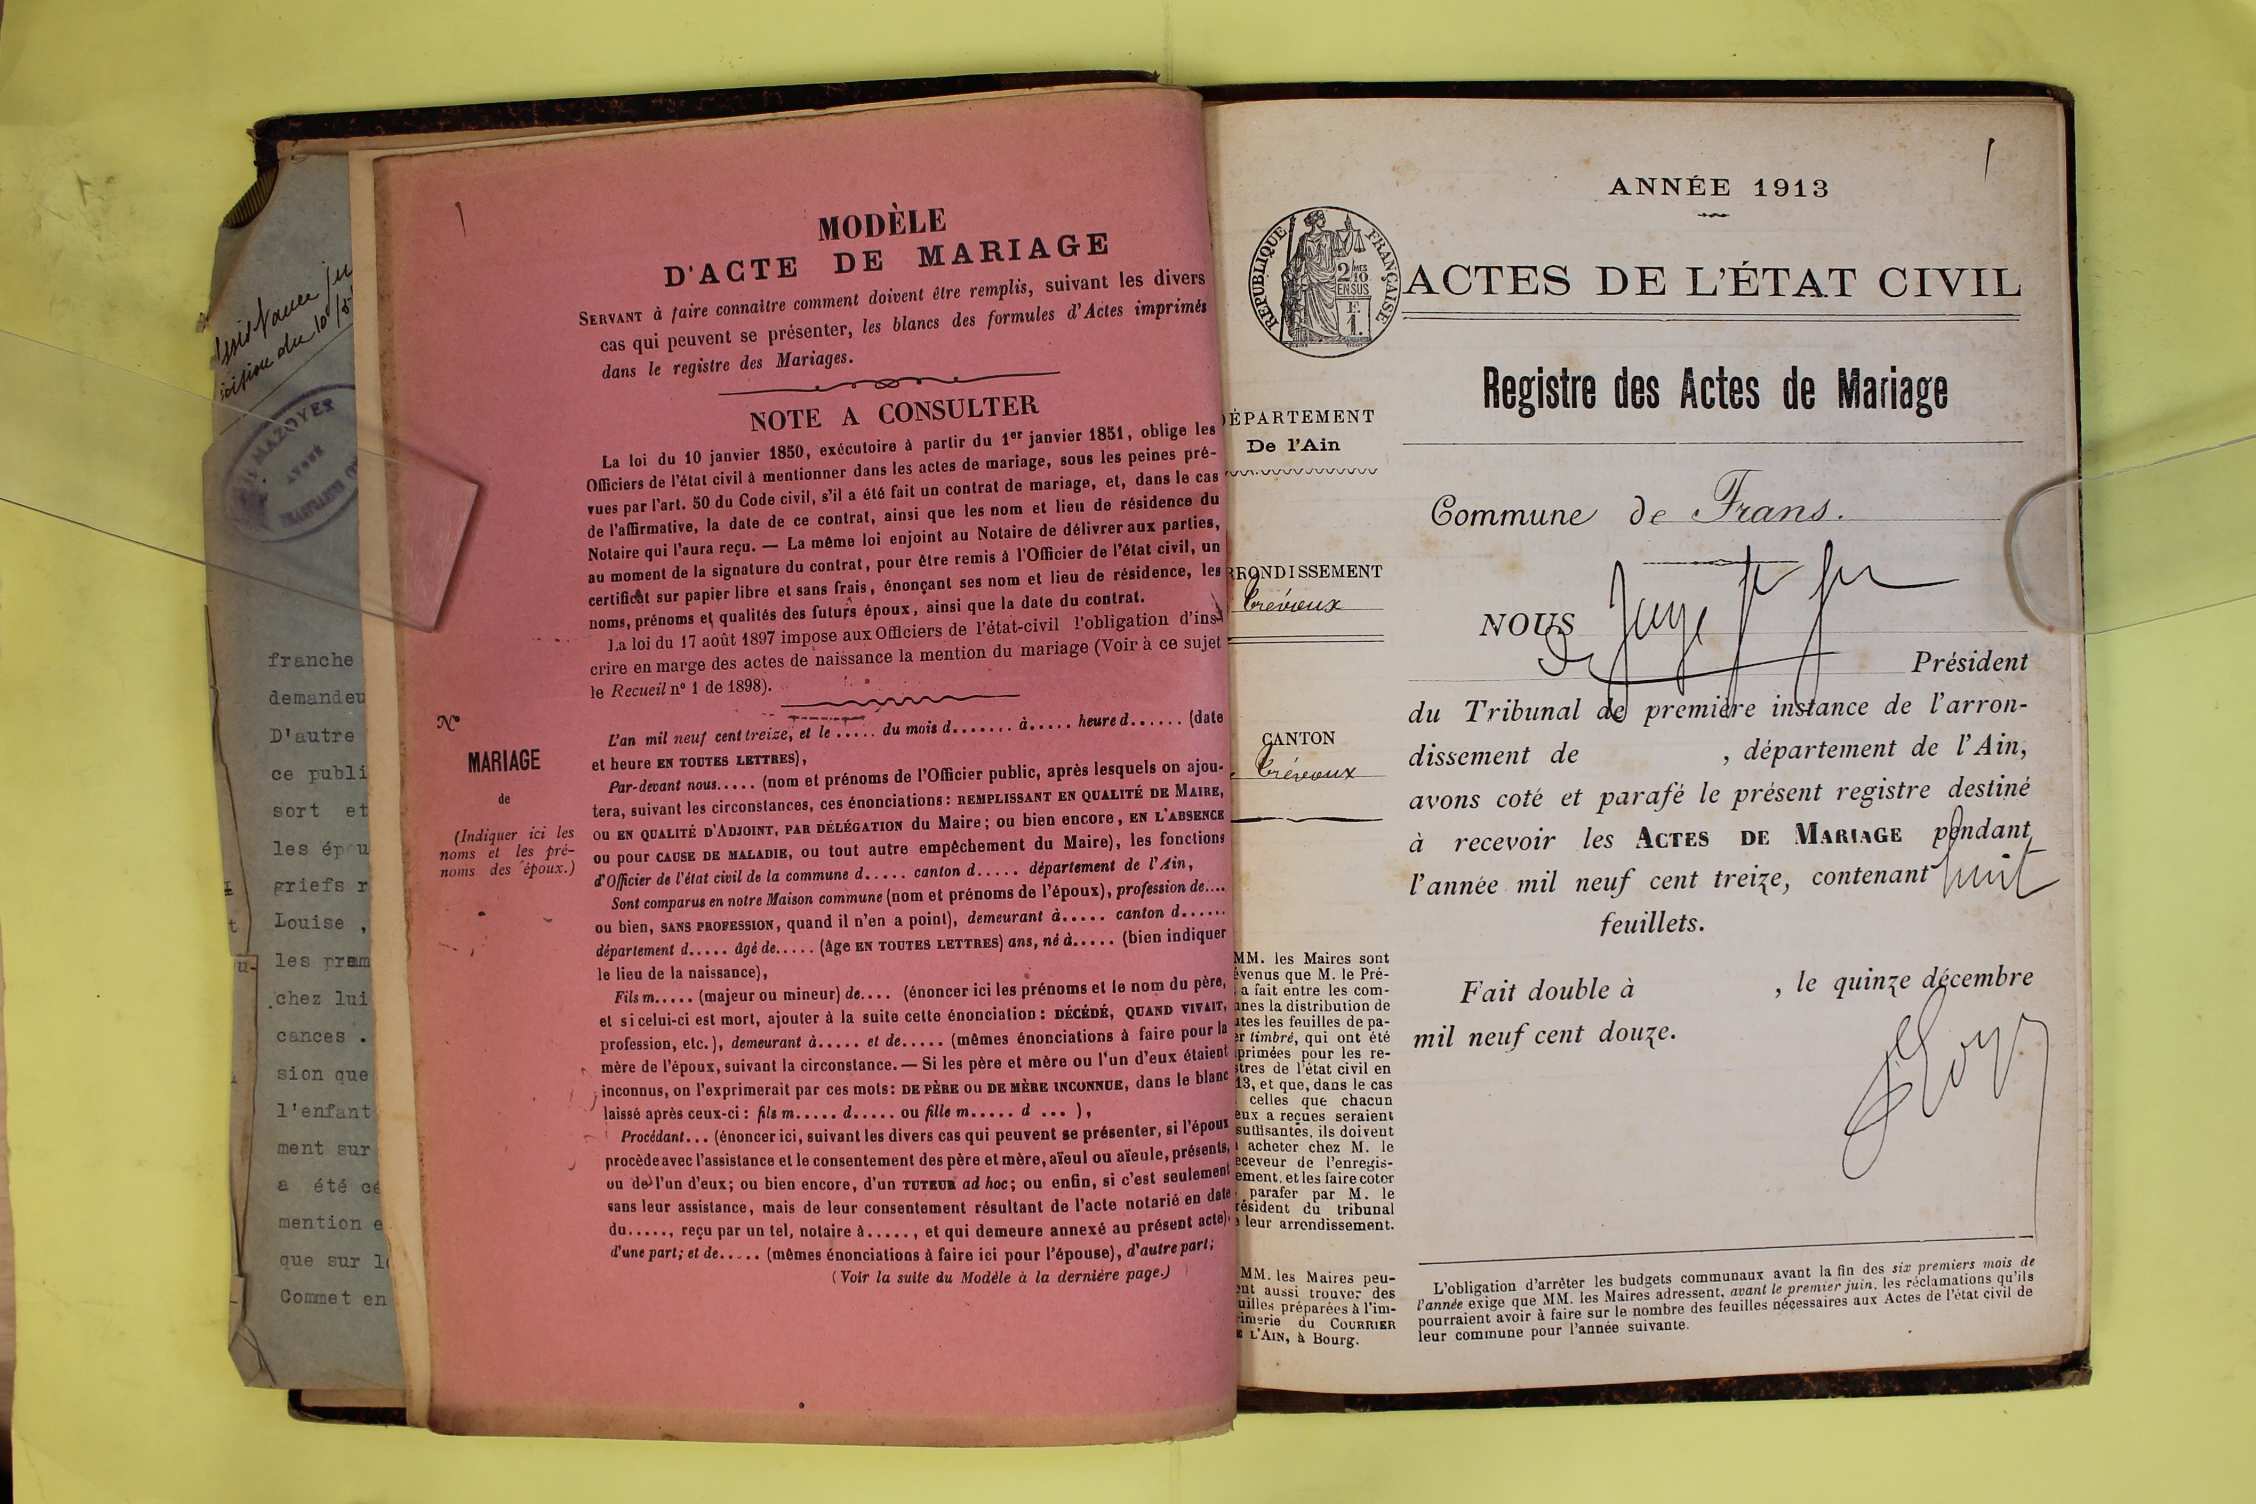 franche
demandeu
D'autre
ce publi
sort et
les épou
griefs r
Louise ,
les prem
chez lui
cances .
sion que
l'enfant
ment sur
a été cé
mention e
que sur l
Commet en
MAZOYER
AVOUÉ
MODÈLE
D'ACTE DE MARIAGE
SERVANT à faire connaitre comment doivent être remplis, suivant les divers
cas qui peuvent se présenter, les blancs des formules d'Actes imprimés
dans le registre des Mariages.
NOTE A CONSULTER
La loi du 10 janvier 1850, exécutoire à partir du 1er janvier 1851, oblige les
Officiers de l'état civil à mentionner dans les actes de mariage, sous les peines pré-
vues par l'art. 50 du Code civil, s'il a été fait un contrat de mariage, et, dans le cas
de l'affirmative, la date de ce contrat, ainsi que les nom et lieu de résidence du
Notaire qui l'aura reçu. — La même loi enjoint au Notaire de délivrer aux parties,
au moment de la signature du contrat, pour être remis à l'Officier de l'état civil, un
certificat sur papier libre et sans frais, énonçant ses nom et lieu de résidence, les
noms, prénoms et qualités des futurs époux, ainsi que la date du contrat.
La loi du 17 août 1897 impose aux Officiers de l'état-civil l'obligation d'ins-
crire en marge des actes de naissance la mention du mariage (Voir à ce sujet
le Recueil n° 1 de 1898).
N°
MARIAGE
de
(Indiquer ici les
noms et les pré-
noms des époux.)
L'an mil neuf cent treize, et le ..... du mois d....... à..... heure d...... (date
et heure EN TOUTES LETTRES),
Par-devant nous..... (nom et prénoms de l'Officier public, après lesquels on ajou-
tera, suivant les circonstances, ces énonciations : REMPLISSANT EN QUALITÉ DE MAIRE,
ou EN QUALITÉ D'ADJOINT, PAR DÉLÉGATION du Maire ; ou bien encore, EN L'ABSENCE
ou pour CAUSE DE MALADIE, ou tout autre empêchement du Maire), les fonctions
d'Officier de l'état civil de la commune d..... canton d..... département de l'Ain,
Sont comparus en notre Maison commune (nom et prénoms de l'époux), profession de....
ou bien, SANS PROFESSION, quand il n'en a point), demeurant à..... canton d......
département d..... âgé de..... (âge EN TOUTES LETTRES) ans, né à..... (bien indiquer
le lieu de la naissance),
Fils m..... (majeur ou mineur) de.... (énoncer ici les prénoms et le nom du père,
et si celui-ci est mort, ajouter à la suite cette énonciation : DÉCÉDÉ, QUAND VIVAIT,
profession, etc.), demeurant à..... et de..... (mêmes énonciations à faire pour la
mère de l'époux, suivant la circonstance. — Si les père et mère ou l'un d'eux étaient
inconnus, on l'exprimerait par ces mots : DE PÈRE OU DE MÈRE INCONNUE, dans le blanc
laissé après ceux-ci : fils m..... d..... ou fille m..... d ... ),
Procédant... (énoncer ici, suivant les divers cas qui peuvent se présenter, si l'époux
procède avec l'assistance et le consentement des père et mère, aïeul ou aïeule, présents,
ou de l'un d'eux; ou bien encore, d'un TUTEUR ad hoc; ou enfin, si c'est seulement
sans leur assistance, mais de leur consentement résultant de l'acte notarié en date
du....., reçu par un tel, notaire à....., et qui demeure annexé au présent acte),
d'une part; et de..... (mêmes énonciations à faire ici pour l'épouse), d'autre part;
(Voir la suite du Modèle à la dernière page.)
ANNÉE 1913
RÉPUBLIQUE FRANÇAISE
2/MES
10
EN SUS
E
1.
ACTES DE L'ÉTAT CIVIL
Registre des Actes de Mariage
DÉPARTEMENT
De l'Ain
RRONDISSEMENT
Trévoux
CANTON
Trévoux
MM. les Maires sont
évenus que M. le Pré-
a fait entre les com-
nes la distribution de
tes les feuilles de pa-
er timbré, qui ont été
primées pour les re-
stres de l'état civil en
13, et que, dans le cas
celles que chacun
eux a reçues seraient
suffisantes, ils doivent
acheter chez M. le
eceveur de l'enregis-
ement, et les faire coter
parafer par M. le
résident du tribunal
leur arrondissement.
MM. les Maires peu-
ent aussi trouver des
uilles préparées à l'im-
rimerie du COURRIER
E L'AIN, à Bourg.
Commune de Frans.
NOUS
Juge
Président
du Tribunal de première instance de l'arron-
dissement de , département de l'Ain,
avons coté et parafé le présent registre destiné
à recevoir les ACTES DE MARIAGE pendant
l'année mil neuf cent treize, contenant huit
feuillets.
Fait double à , le quinze décembre
mil neuf cent douze.
L'obligation d'arrêter les budgets communaux avant la fin des six premiers mois de
l'année exige que MM. les Maires adressent, avant le premier juin, les réclamations qu'ils
pourraient avoir à faire sur le nombre des feuilles nécessaires aux Actes de l'état civil de
leur commune pour l'année suivante.